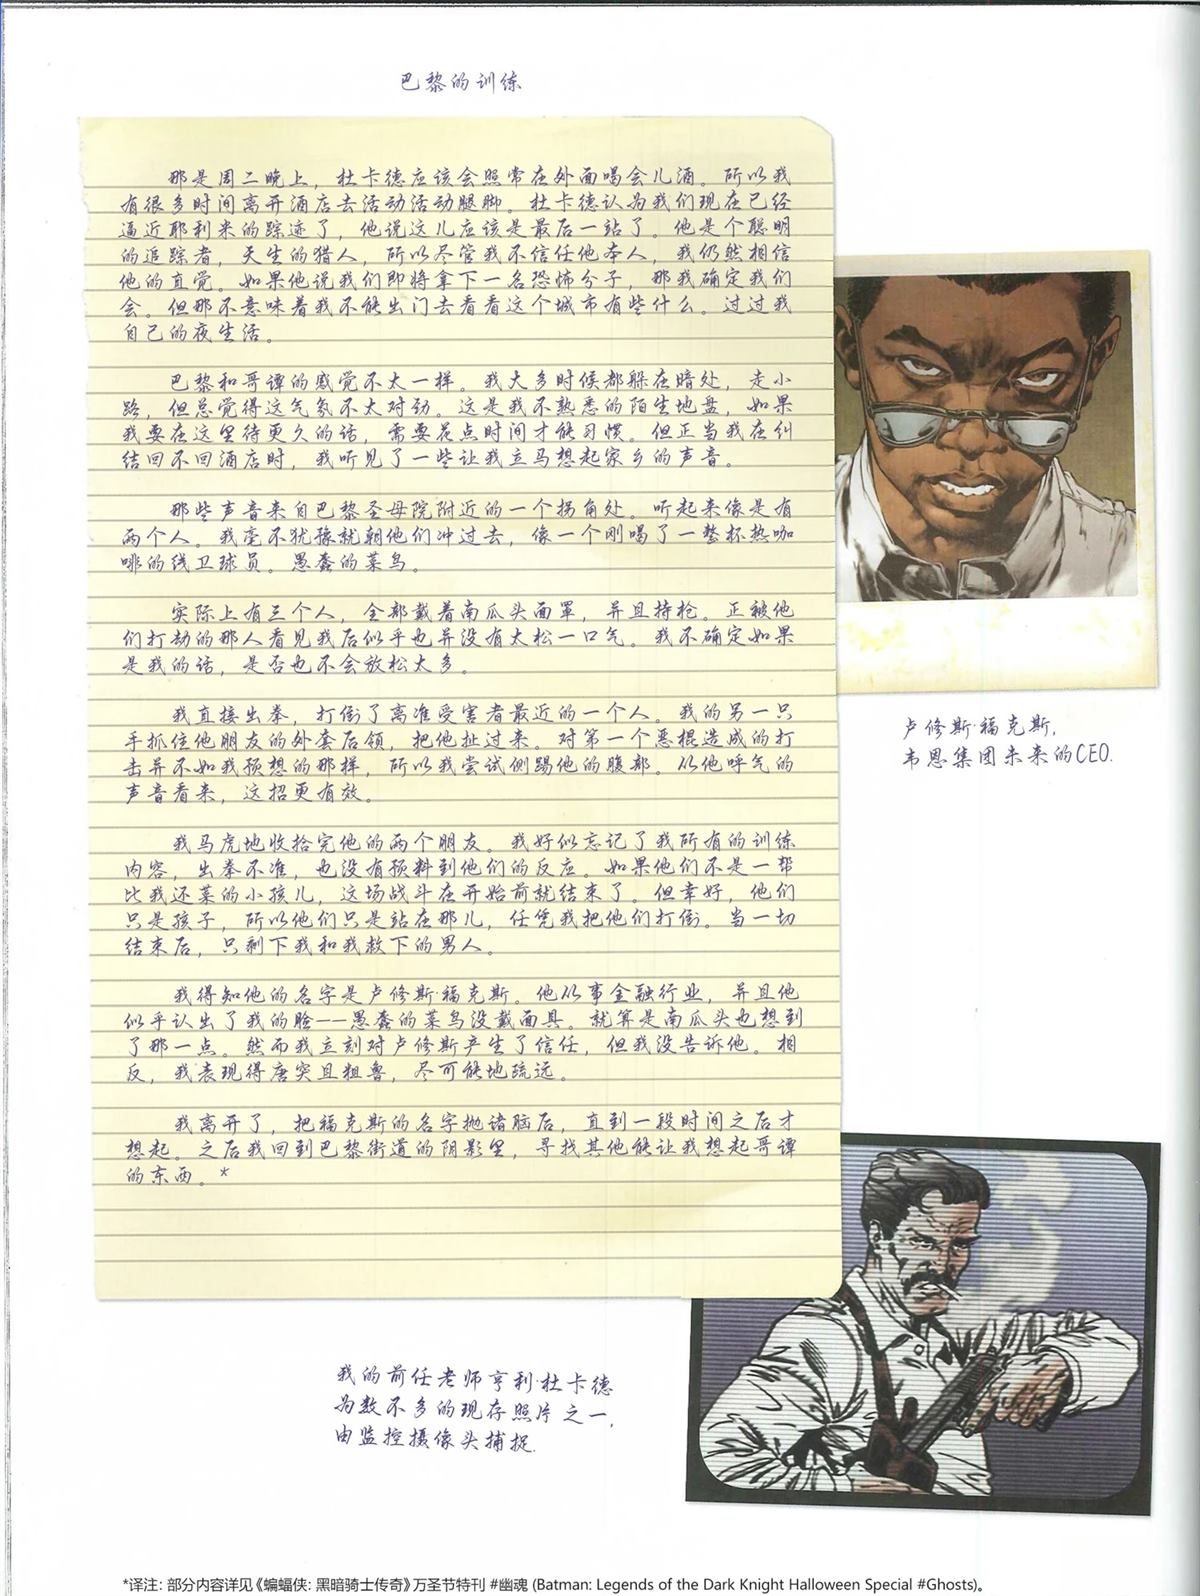 巴黎的训练
那是周二晚上，杜卡德应该会照常在外面喝会儿酒。所以我
有很多时间离开酒店去活动活动腿脚。杜卡德认为我们现在已经
逼近耶利米的踪迹了，他说这儿应该是最后一站了。他是个聪明
的追踪者，天生的猎人，所以尽管我不信任他本人，我仍然相信
他的直觉。如果他说我们即将拿下一名恐怖分子，那我确定我们
会。但那不意味着我不能出门去看看这个城市有些什么。过过我
自己的夜生活。
巴黎和哥谭的感觉不太一样。我大多时候都躲在暗处，走小
路，但总觉得这气氛不太对劲。这是我不熟悉的陌生地盘，如果
我要在这里待更久的话，需要花点时间才能习惯。但正当我在纠
结回不回酒店时，我听见了一些让我立马想起家乡的声音。
那些声音来自巴黎圣母院附近的一个拐角处。听起来像是有
两个人。我毫不犹豫就朝他们冲过去，像一个刚喝了一整杯热咖
啡的线卫球员。愚蠢的菜鸟。
实际上有三个人，全部戴着南瓜头面罩，并且持枪。正被他
们打劫的那人看见我后似乎也并没有太松一口气。我不确定如果
是我的话，是否也不会放松太多。
我直接出拳，打倒了离准受害者最近的一个人。我的另一只
手抓住他朋友的外套后领，把他扯过来。对第一个恶棍造成的打
击并不如我预想的那样，所以我尝试侧踢他的腹部。从他呼气的
声音看来，这招更有效。
我马虎地收拾完他的两个朋友。我好似忘记了我所有的训练
内容，出拳不准，也没有预料到他们的反应。如果他们不是一帮
比我还菜的小孩儿，这场战斗在开始前就结束了。但幸好，他们
只是孩子，所以他们只是站在那儿，任凭我把他们打倒。当一切
结束后，只剩下我和我救下的男人。
我得知他的名字是卢修斯·福克斯。他从事金融行业，并且他
似乎认出了我的脸——愚蠢的菜鸟没戴面具。就算是南瓜头也想到
了那一点。然而我立刻对卢修斯产生了信任，但我没告诉他。相
反，我表现得唐突且粗鲁，尽可能地疏远。
我离开了，把福克斯的名字抛诸脑后，直到一段时间之后才
想起。之后我回到巴黎街道的阴影里，寻找其他能让我想起哥谭
的东西。*
卢修斯·福克斯，
韦恩集团未来的CEO.
我的前任老师亨利·杜卡德
为数不多的现存照片之一，
由监控摄像头捕捉.
*译注：部分内容详见《蝙蝠侠：黑暗骑士传奇》万圣节特刊 #幽魂 (Batman: Legends of the Dark Knight Halloween Special #Ghosts)。